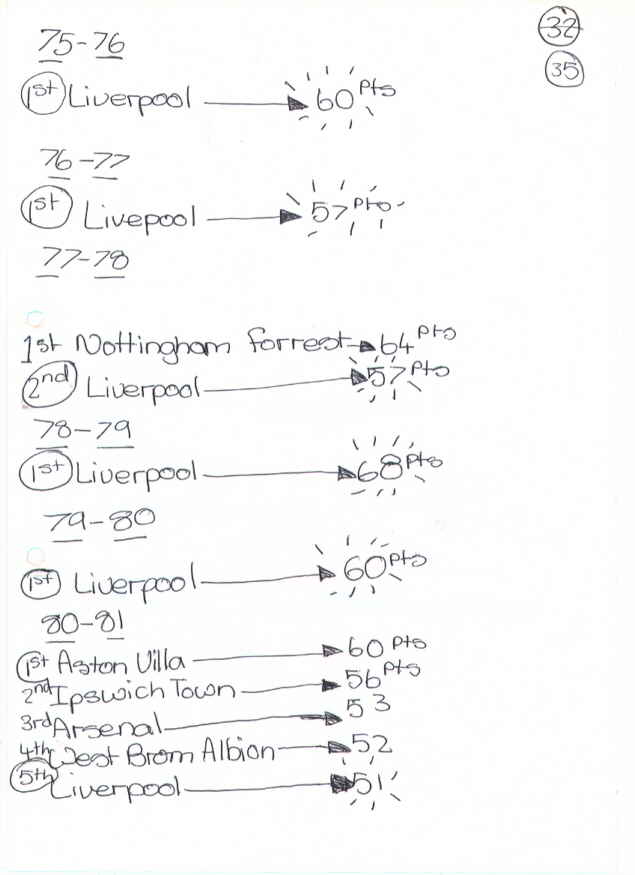 32
35
75-76
1st Liverpool 60 Pts
76-77
1st Livepool 57 Pts
77-78
1st Nottingham Forrest 64 Pts
2nd Liverpool 57 Pts
78-79
1st Liverpool 68 Pts
79-80
1st Liverpool 60 Pts
80-81
1st Aston Villa 60 Pts
2nd Ipswich Town 56 Pts
3rd Arsenal 53
4th West Brom Albion 52
5th Liverpool 51